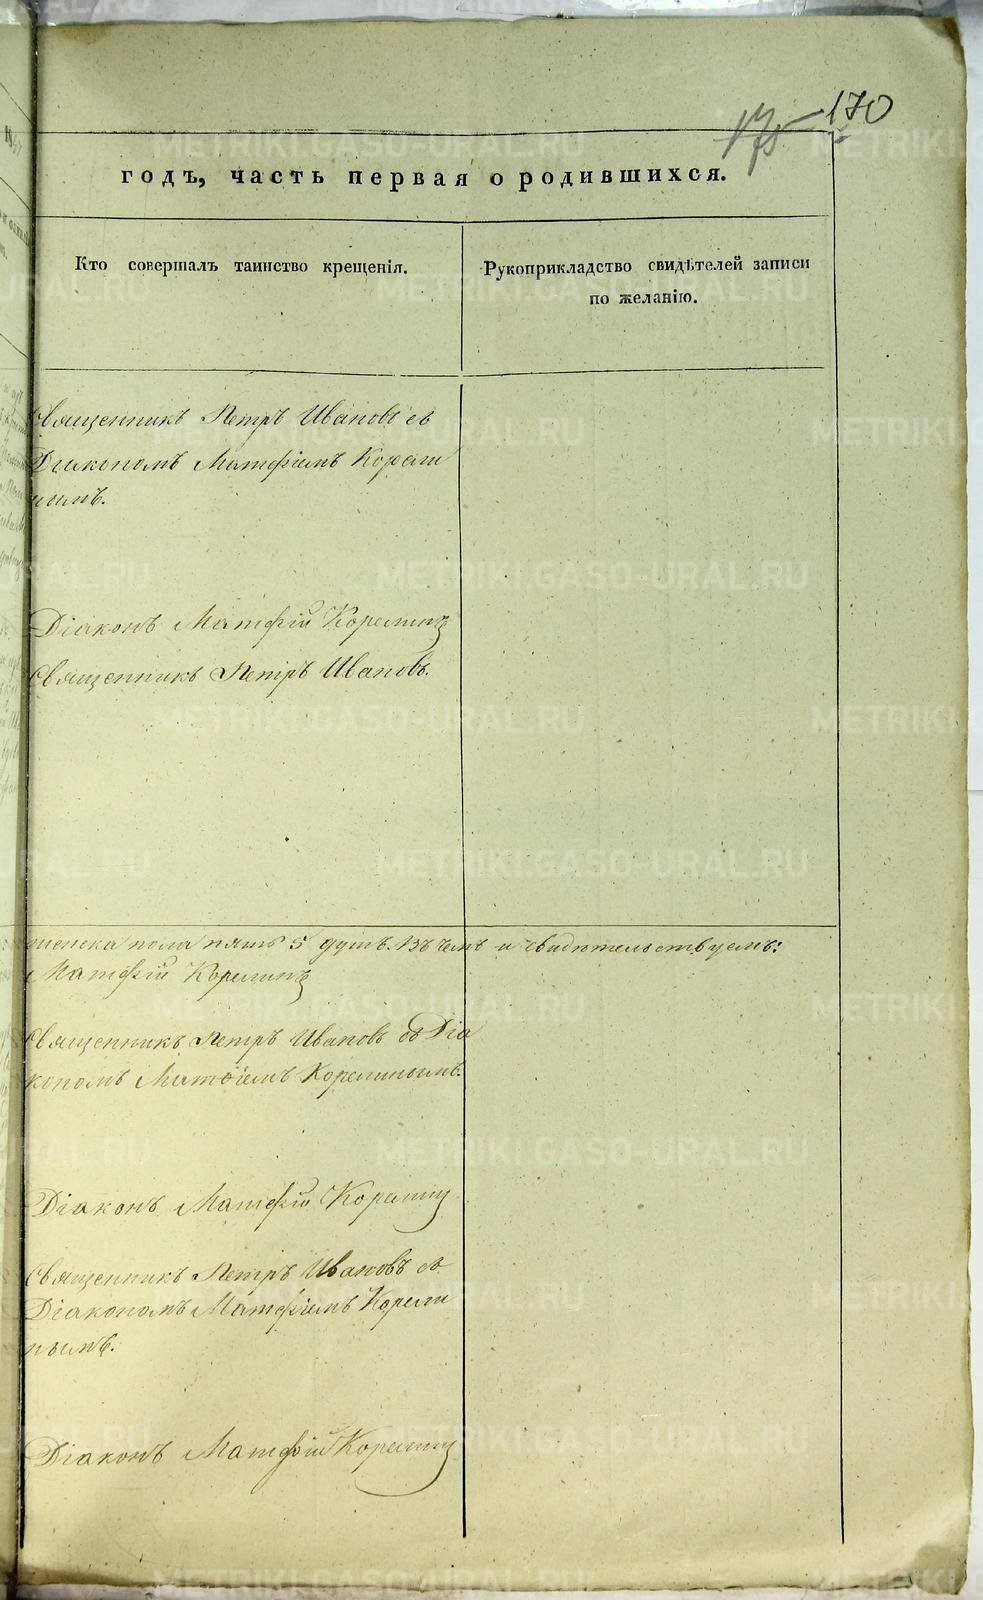 170
175
годъ, часть первая о родившихся.
Кто совершалъ таинство крещенія.
Рукоприкладство свидѣтелей записи
по желанію.
Священникъ Петръ Ивановъ съ
Діакономъ Матфіемъ Корели
нымъ.
Діаконъ Матфій Корелинъ
Священникъ Петръ Ивановъ.
женска пола пять 5 душъ. Въ чемъ и свидѣтельствуемъ:
Матфій Корелинъ
Священникъ Петръ Ивановъ съ Діа
кономъ Матѳіемъ Корелинымъ.
Діаконъ Матфій Корелинъ
Священникъ Петръ Ивановъ съ
Діакономъ Матфіемъ Корели
нымъ.
Діаконъ Матфій Корелинъ
METRIKI.GASO-URAL.RU